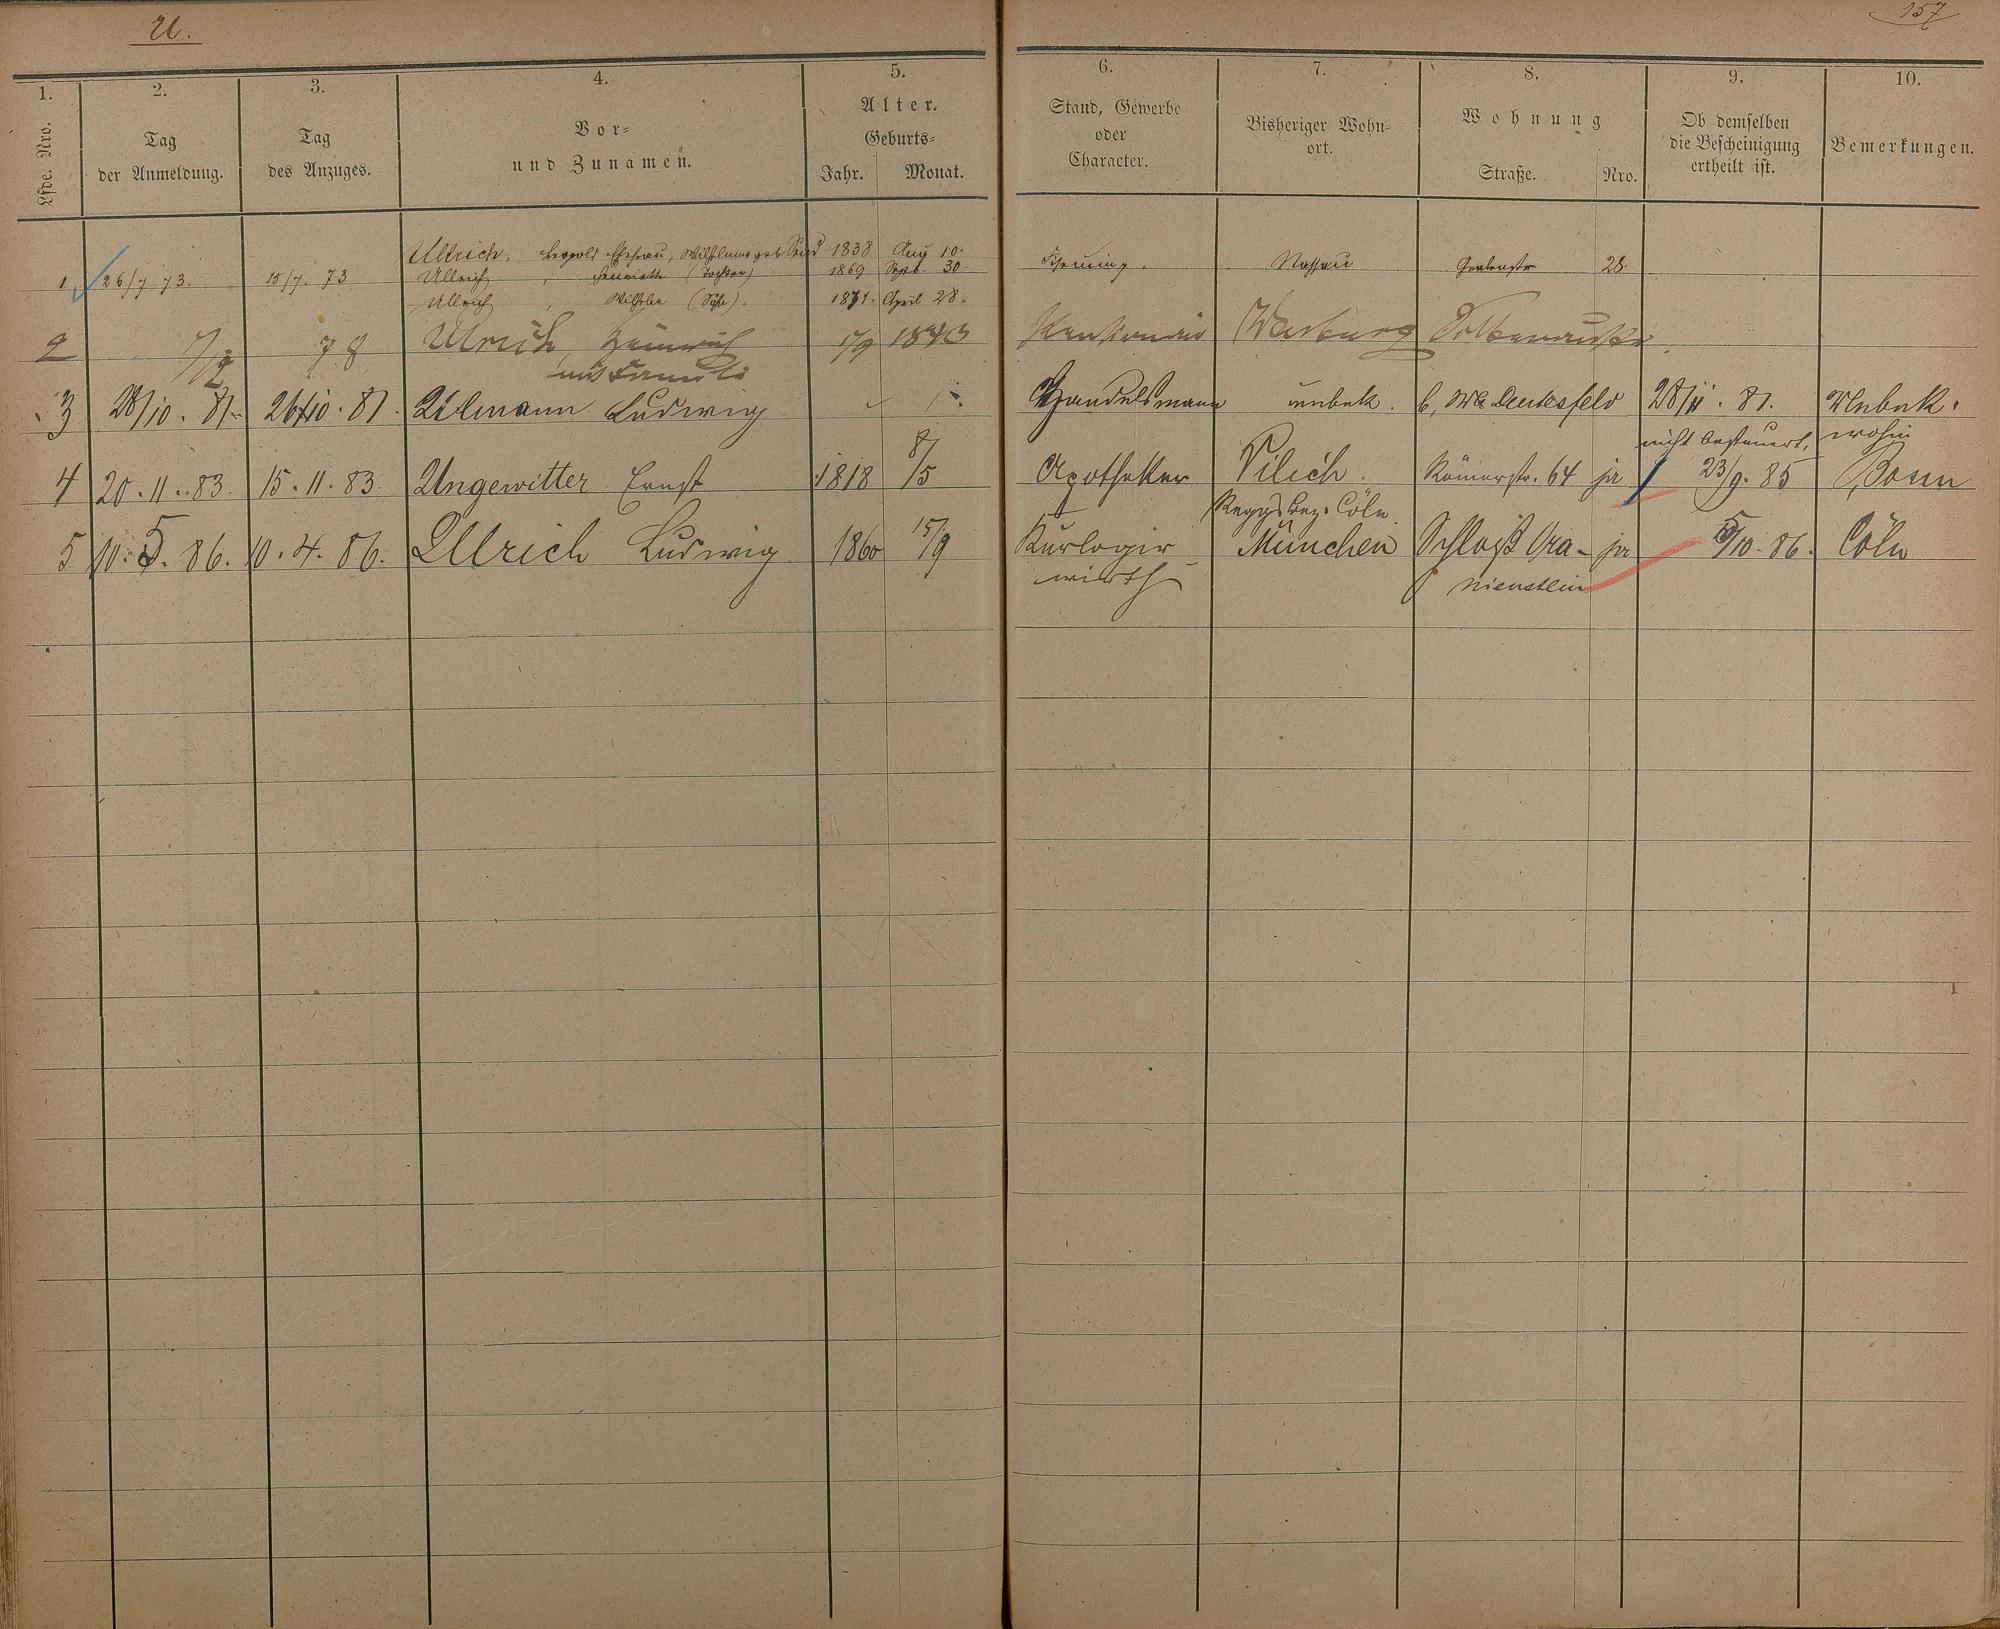 U.
157
1.
2.
3.
4.
5.
6.
7.
8.
9.
10.
Lfde. Nro.
Tag
der Anmeldung.
Tag
des Anzuges.
Vor-
und Zunamen.
Alter.
Geburts-
Jahr. Monat.
Stand, Gewerbe
oder
Character.
Bisheriger Wohn-
ort.
Wohnung
Straße. Nro.
Ob demselben
die Bescheinigung
ertheilt ist.
Bemerkungen.
Ullrich, Leopold Ehefrau, Wilhelmine geb 1838 Aug 10.
1 26/7 73. 15/7. 73 Ullrich, Henriette (Tochter) 1869 Sept. 30. Nassau Grabenstr 28.
Ullrich, (Sohn). 1871. April 28.
2 7/2 78 Ulrich, Heinrich 1/9 1843 Warburg
mit Familie
3 28/10. 81. 26/10. 81. Ullmann Ludwig Handelsmann unbek. b, We Deutesfeld 28/11. 81. Unbek.
nicht besteuert, wohin
4 20. 11. 83. 15. 11. 83. Ungewitter Ernst 1818 8/5 Apotheker Vilich. Römerstr. 64 ja 23/9. 85 Bonn
Reggsbez. Cöln
5 10. 5. 86. 10. 4. 86. Ullrich Ludwig 1860 15/9 Kurlogir München Schloß Ora- ja 5/10. 86. Cöln
wirth nienstein